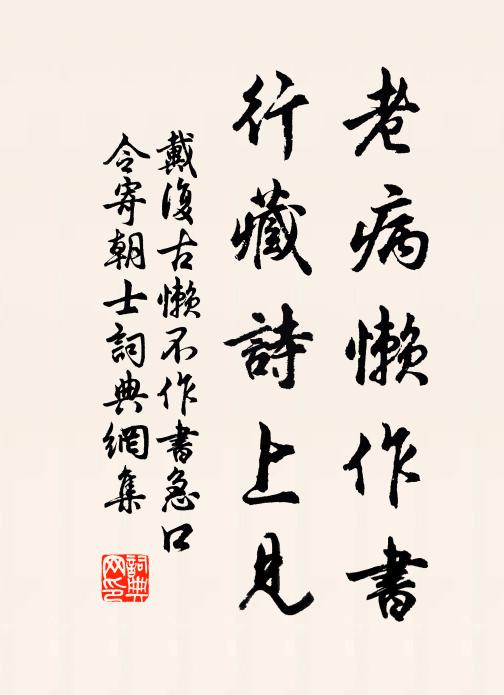 老病懒作書
行藏詩上見
戴復古懒不作書急口
令寄朝士詞典網集
詞典网印